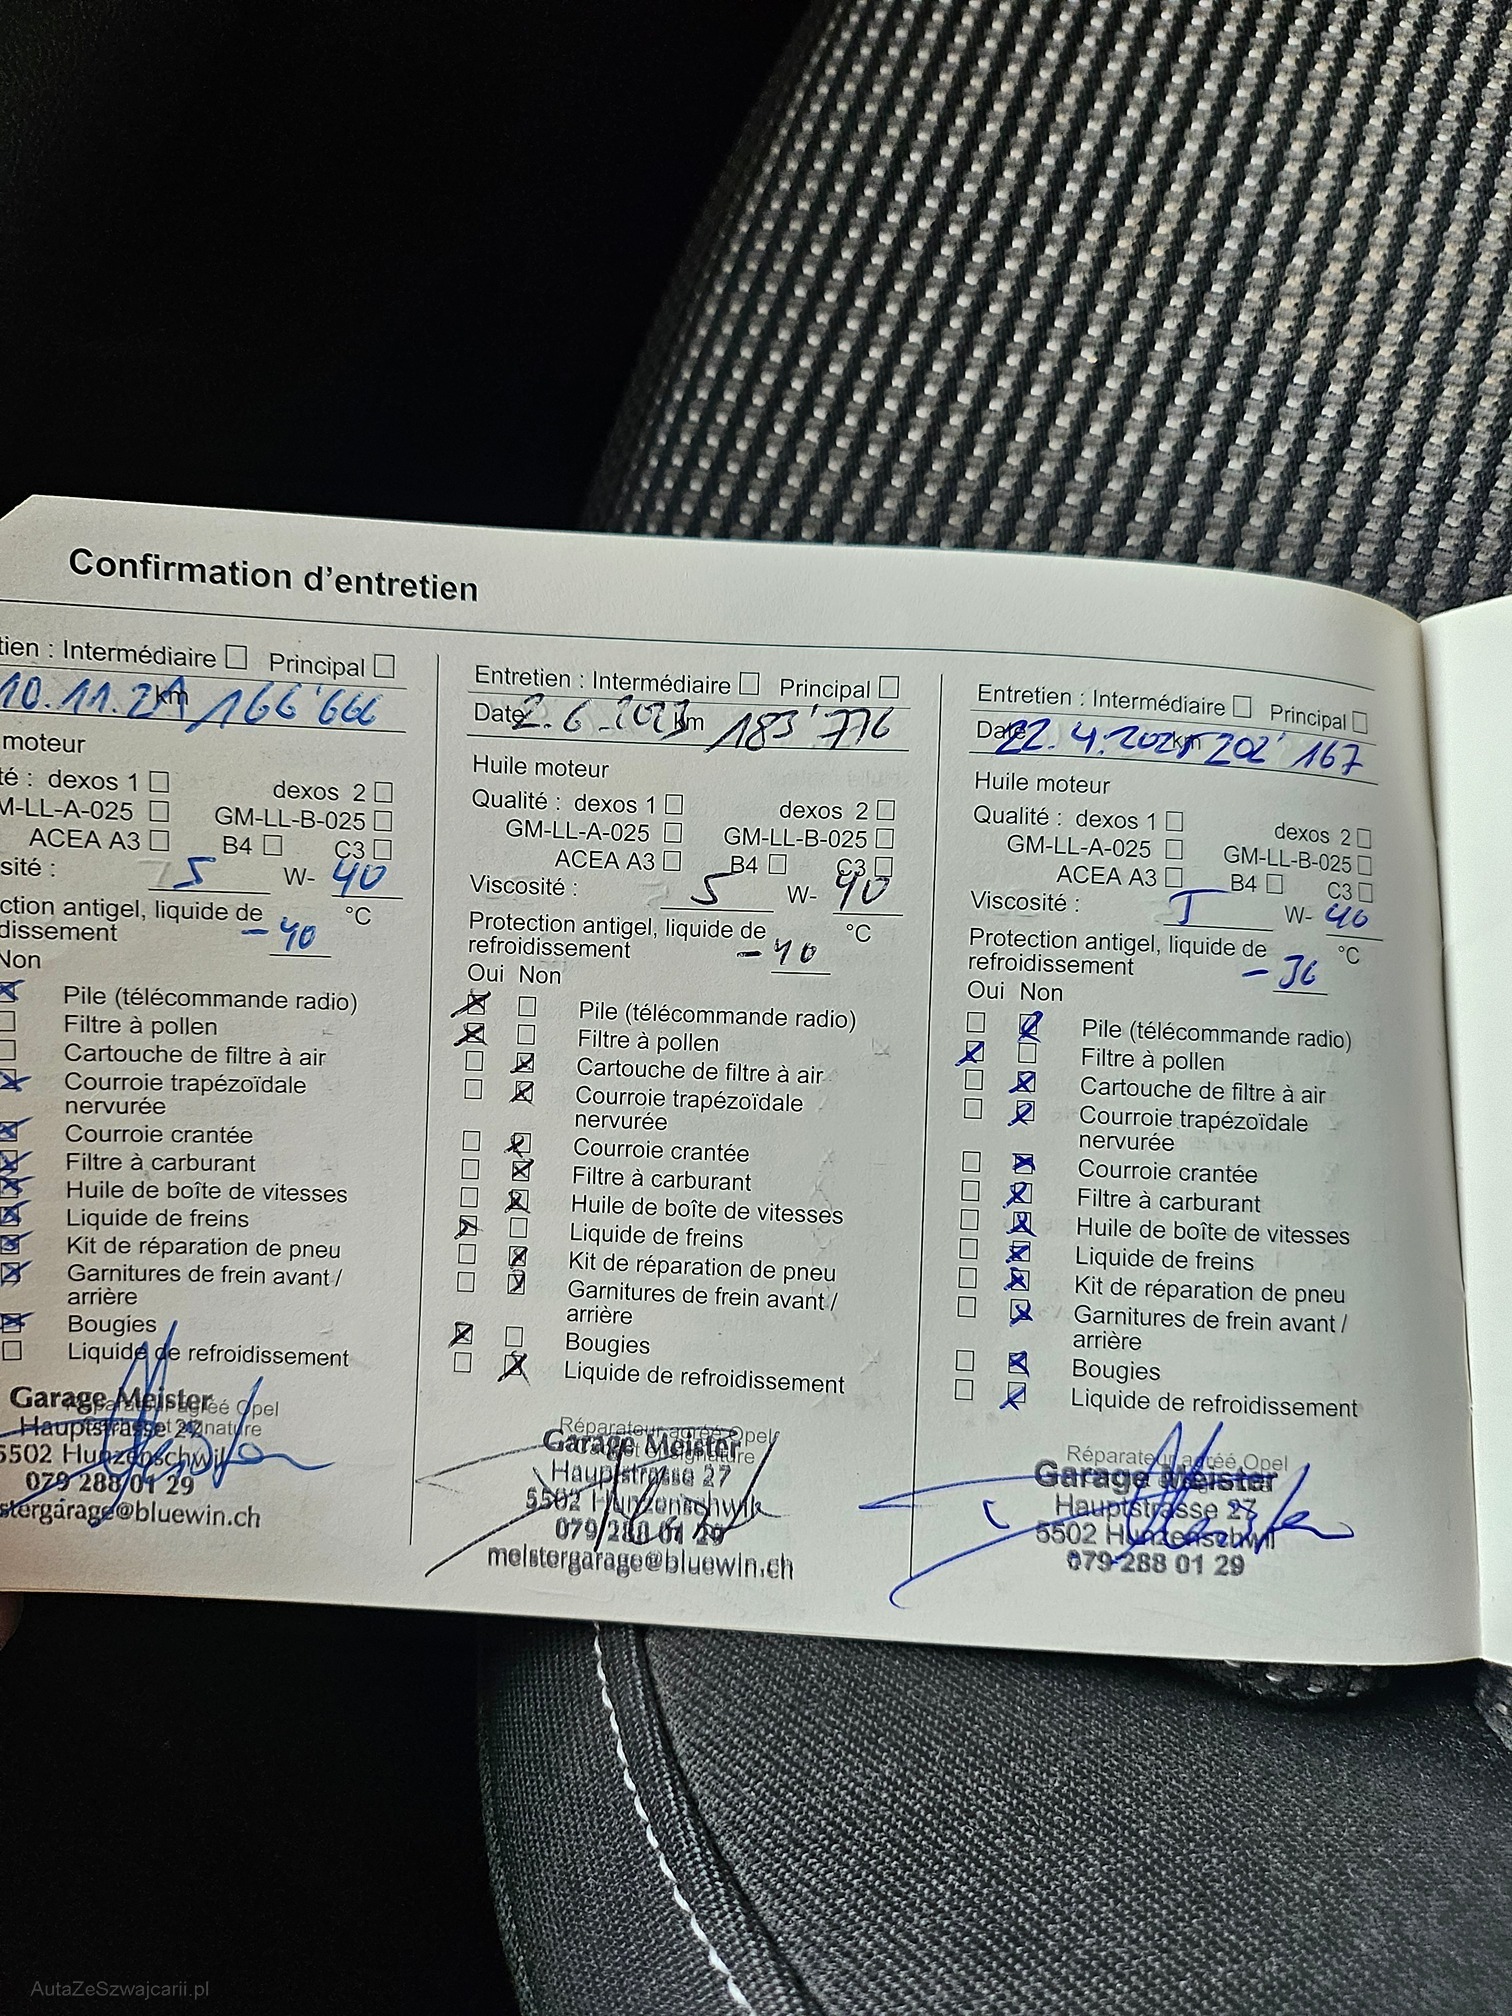 Confirmation d'entretien
tien : Intermédiaire Principal
10.11.21 km 166'666
moteur
té : dexos 1 dexos 2
M-LL-A-025 GM-LL-B-025
ACEA A3 B4 C3
sité : 5 W- 40
ction antigel, liquide de °C
dissement -40
Non
Pile (télécommande radio)
Filtre à pollen
Cartouche de filtre à air
Courroie trapézoïdale
nervurée
Courroie crantée
Filtre à carburant
Huile de boîte de vitesses
Liquide de freins
Kit de réparation de pneu
Garnitures de frein avant /
arrière
Bougies
Liquide de refroidissement
Garage Meister
Hauptstrasse 27
5502 Hunzenschwil
079 288 01 29
stergarage@bluewin.ch
Entretien : Intermédiaire Principal
Date 2.6.2023 km 183'776
Huile moteur
Qualité : dexos 1 dexos 2
GM-LL-A-025 GM-LL-B-025
ACEA A3 B4 C3
Viscosité : 5 W- 40
Protection antigel, liquide de °C
refroidissement -40
Oui Non
Pile (télécommande radio)
Filtre à pollen
Cartouche de filtre à air
Courroie trapézoïdale
nervurée
Courroie crantée
Filtre à carburant
Huile de boîte de vitesses
Liquide de freins
Kit de réparation de pneu
Garnitures de frein avant /
arrière
Bougies
Liquide de refroidissement
Réparateur agréé Opel
Garage Meister
Hauptstrasse 27
5502 Hunzenschwil
079 288 01 29
meistergarage@bluewin.ch
Entretien : Intermédiaire Principal
Date 22.4.2025 km 202'167
Huile moteur
Qualité : dexos 1 dexos 2
GM-LL-A-025 GM-LL-B-025
ACEA A3 B4 C3
Viscosité : 5 W- 40
Protection antigel, liquide de °C
refroidissement -36
Oui Non
Pile (télécommande radio)
Filtre à pollen
Cartouche de filtre à air
Courroie trapézoïdale
nervurée
Courroie crantée
Filtre à carburant
Huile de boîte de vitesses
Liquide de freins
Kit de réparation de pneu
Garnitures de frein avant /
arrière
Bougies
Liquide de refroidissement
Réparateur agréé Opel
Garage Meister
Hauptstrasse 27
5502 Hunzenschwil
079 288 01 29
AutaZeSzwajcarii.pl